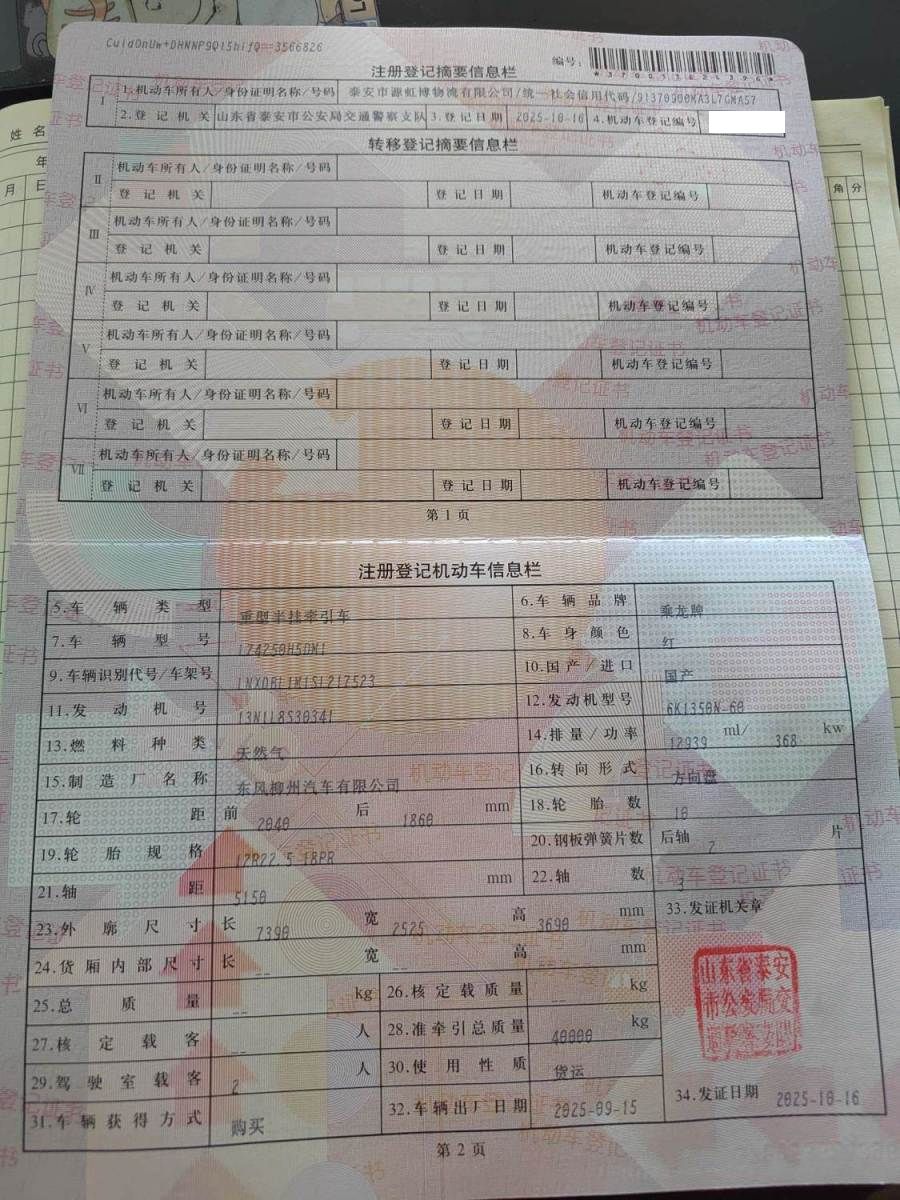 编号:
注册登记摘要信息栏
Ⅰ 1.机动车所有人/身份证明名称/号码 泰安市源虹博物流有限公司/统一社会信用代码/91370900MA3L7GMA57
2.登记机关 山东省泰安市公安局交通警察支队 3.登记日期 2025-10-16 4.机动车登记编号
转移登记摘要信息栏
Ⅱ 机动车所有人/身份证明名称/号码
登记机关 登记日期 机动车登记编号
Ⅲ 机动车所有人/身份证明名称/号码
登记机关 登记日期 机动车登记编号
Ⅳ 机动车所有人/身份证明名称/号码
登记机关 登记日期 机动车登记编号
Ⅴ 机动车所有人/身份证明名称/号码
登记机关 登记日期 机动车登记编号
Ⅵ 机动车所有人/身份证明名称/号码
登记机关 登记日期 机动车登记编号
Ⅶ 机动车所有人/身份证明名称/号码
登记机关 登记日期 机动车登记编号
第1页
注册登记机动车信息栏
5.车辆类型 重型半挂牵引车 6.车辆品牌 乘龙牌
7.车辆型号 8.车身颜色 红
9.车辆识别代号/车架号 10.国产/进口 国产
11.发动机号 12.发动机型号 6K1350N-60
13.燃料种类 天然气 14.排量/功率 12939 ml/ 368 kw
15.制造厂名称 东风柳州汽车有限公司 16.转向形式 方向盘
17.轮距 前 2040 后 1860 mm 18.轮胎数 10
19.轮胎规格 12R22.5 18PR 20.钢板弹簧片数 后轴 片
21.轴距 5150 mm 22.轴数 3
23.外廓尺寸 长 7390 宽 2525 高 3690 mm 33.发证机关章
24.货厢内部尺寸 长 -- 宽 -- 高 -- mm
25.总质量 -- kg 26.核定载质量 -- kg
27.核定载客 -- 人 28.准牵引总质量 40000 kg
29.驾驶室载客 2 人 30.使用性质 货运
31.车辆获得方式 购买 32.车辆出厂日期 2025-09-15 34.发证日期 2025-10-16
山东省泰安
市公安局交
第2页
姓名
年
月 日
角 分
机动车登记证书